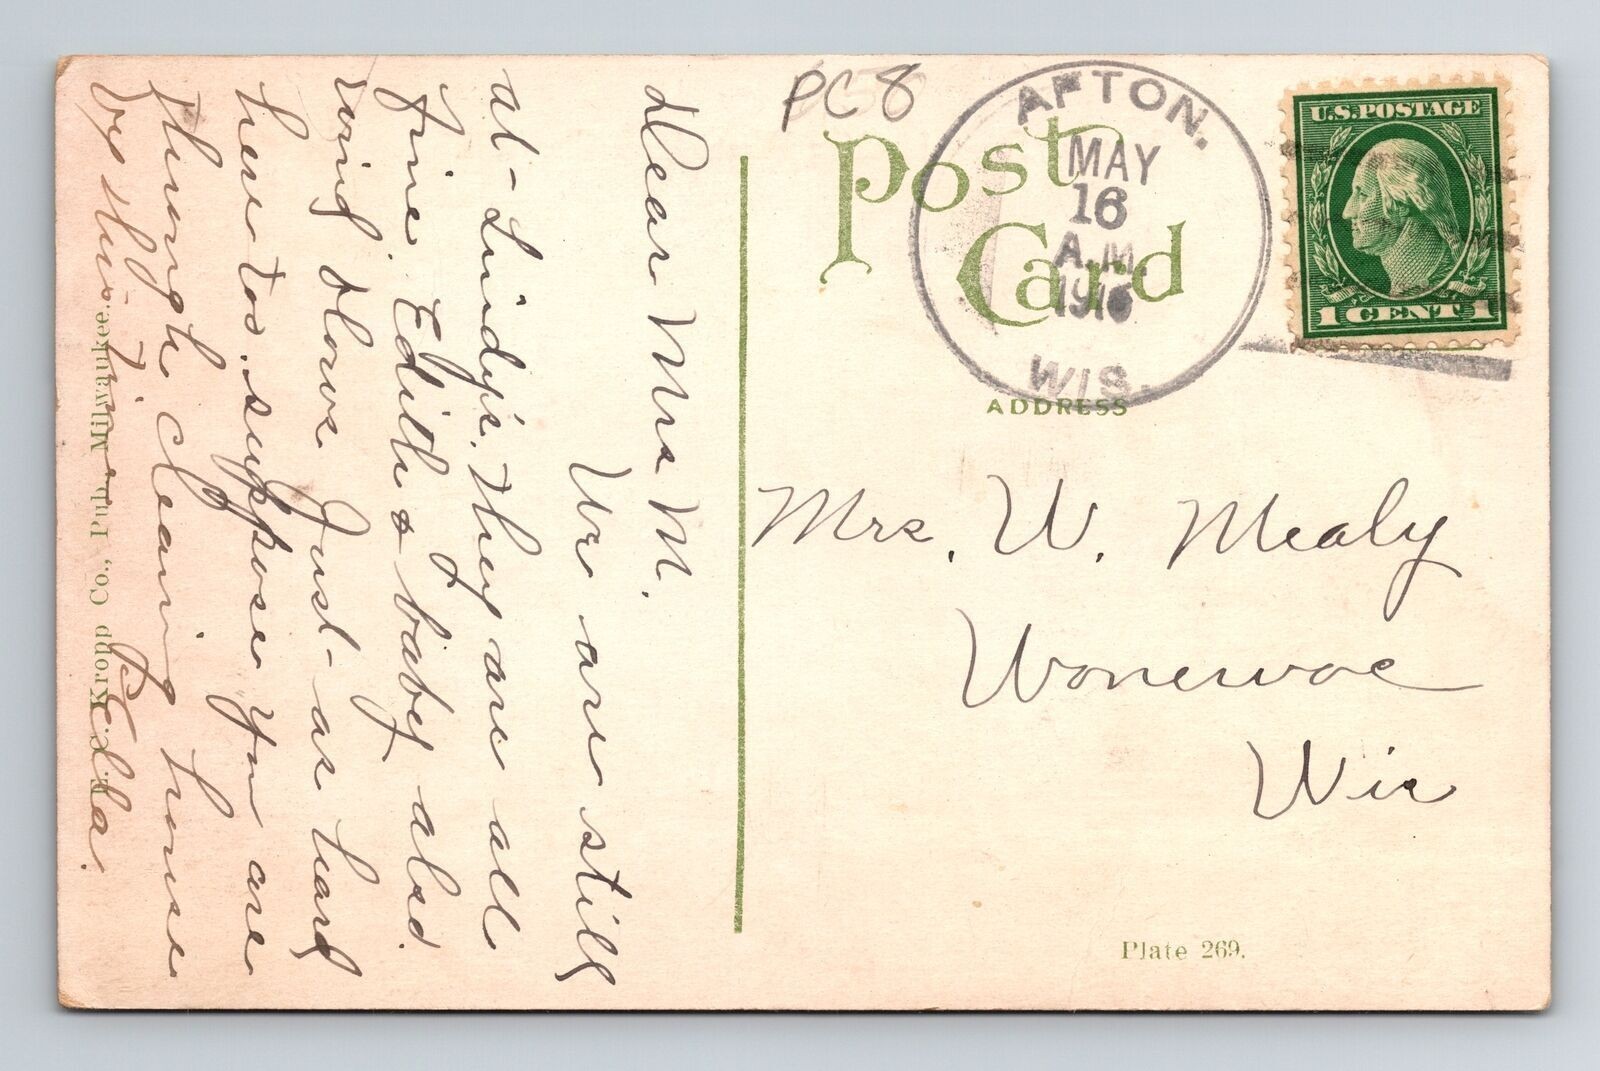 PC 8
Post
Card
AFTON.
MAY
16
A.M.
1916
WIS.
U.S. POSTAGE
1 CENT 1
ADDRESS
Mrs. W. Mealy
Wonewoc
Wis
Plate 269.
Dear Mrs M.
We are still
at Lindy's. They are all
fine. Edith & baby also.
Just as hard
here too. suppose you are
through cleaning house
by this time
Ella.
E. C. Kropp Co., Pub. Milwaukee.